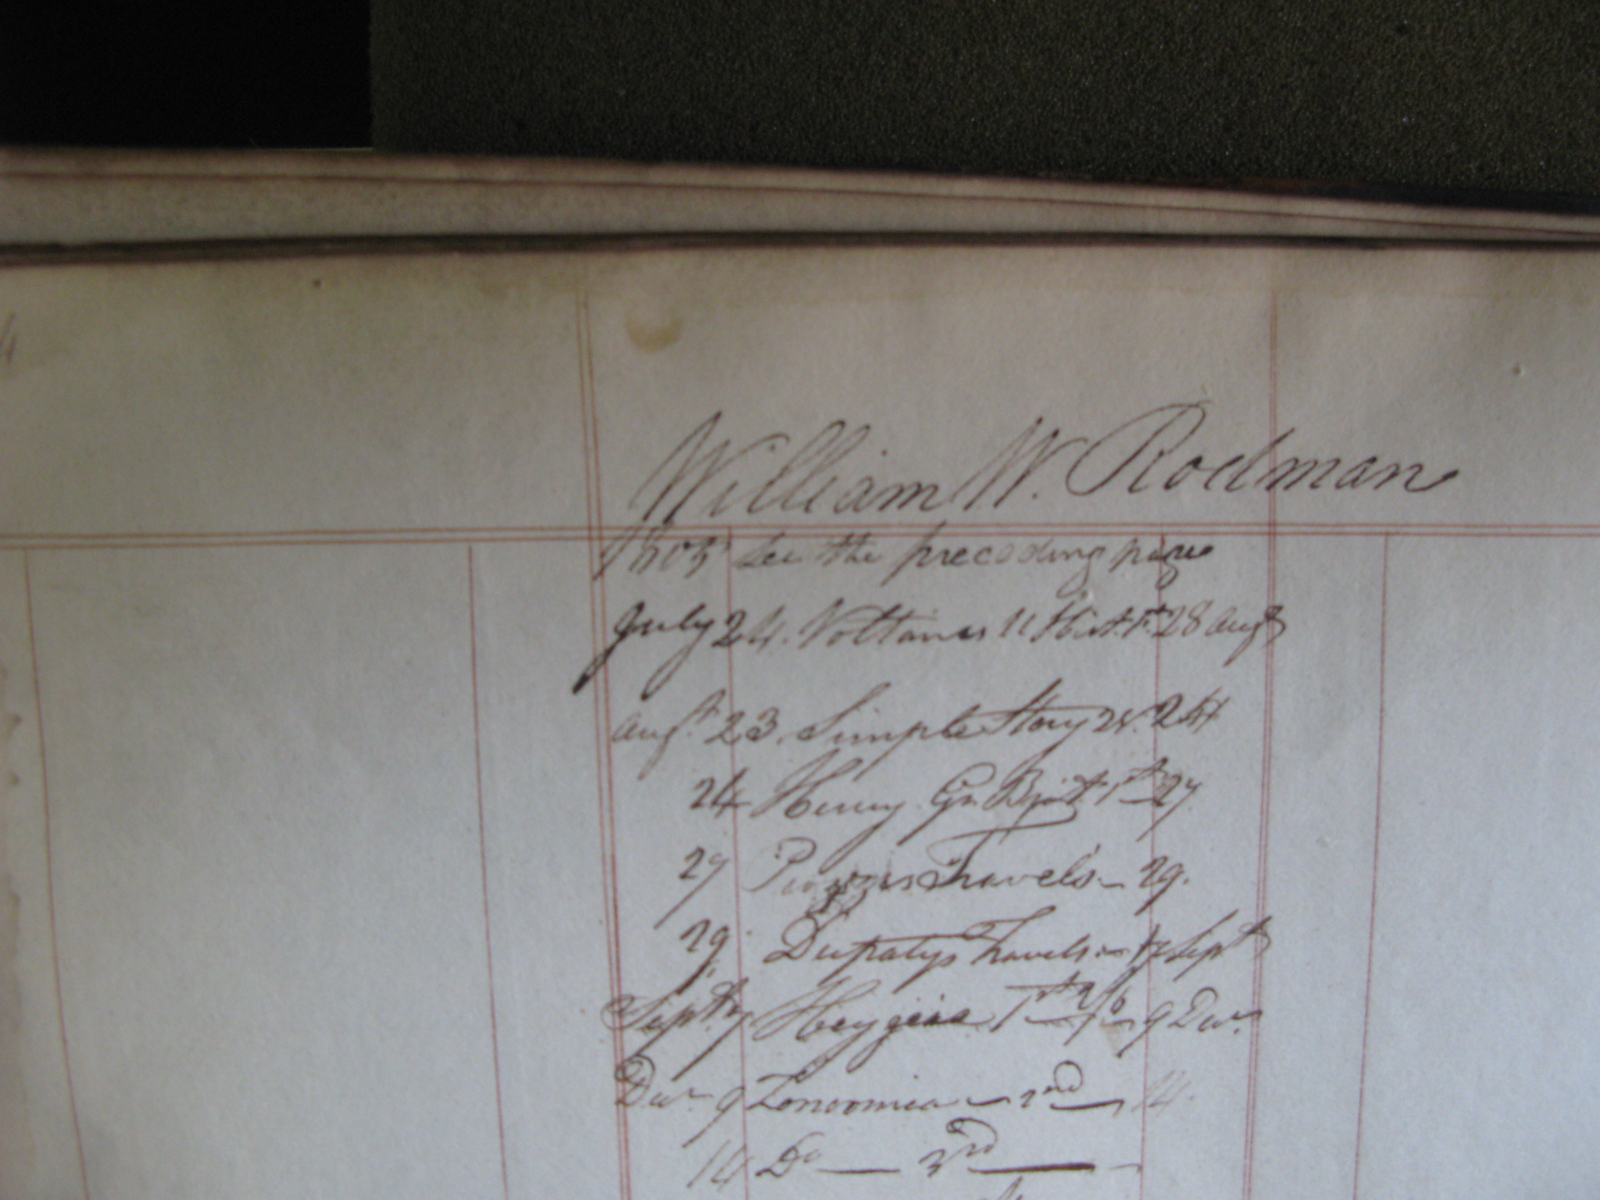 William W. Rodman
1805 See the preceding page
July 24. Voltaires 11 Hist. 1st 28 Augt
Augt. 23. Simple Story 2v. 24
24 Henry Gr. Brit. 1st 27
27 Travels 29.
29. Dupatys Travels 7 Sept
Sept. 7 Heygeia 1st 9 Decr.
Decr. 9 Zoonomia 2nd 14.
14 Do 3rd